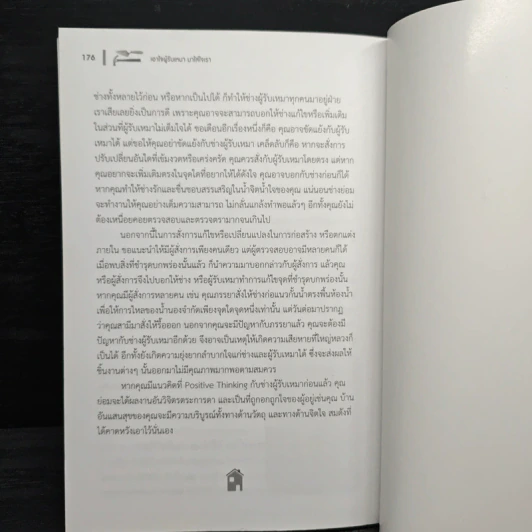 176 เอาใจผู้รับเหมา มาใส่ใจเรา
ช่างทั้งหลายไว้ก่อน หรือหากเป็นไปได้ ก็ทำให้ช่างผู้รับเหมาทุกคนมาอยู่ฝ่าย
เราเสียเลยยิ่งเป็นการดี เพราะคุณอาจจะสามารถบอกให้ช่างแก้ไขหรือเพิ่มเติม
ในส่วนที่ผู้รับเหมาไม่เต็มใจได้ ขอเตือนอีกเรื่องหนึ่งก็คือ คุณอาจขัดแย้งกับผู้รับ
เหมาได้ แต่ขอให้คุณอย่าขัดแย้งกับช่างผู้รับเหมา เคล็ดลับก็คือ หากจะสั่งการ
ปรับเปลี่ยนอันใดที่เข้มงวดหรือเคร่งครัด คุณควรสั่งกับผู้รับเหมาโดยตรง แต่หาก
คุณอยากจะเพิ่มเติมตรงในจุดใดที่อยากให้ได้ดังใจ คุณอาจบอกกับช่างก่อนก็ได้
หากคุณทำให้ช่างรักและชื่นชอบสรรเสริญในน้ำจิตน้ำใจของคุณ แน่นอนช่างย่อม
จะทำงานให้คุณอย่างเต็มความสามารถ ไม่กลั่นแกล้งทำพอแล้วๆ อีกทั้งคุณยังไม่
ต้องเหนื่อยคอยตรวจสอบและตรวจตรามากจนเกินไป
นอกจากนี้ในการสั่งการแก้ไขหรือเปลี่ยนแปลงในการก่อสร้าง หรือตกแต่ง
ภายใน ขอแนะนำให้มีผู้สั่งการเพียงคนเดียว แต่ผู้ตรวจสอบอาจมีหลายคนก็ได้
เมื่อพบสิ่งที่ชำรุดบกพร่องนั้นแล้ว ก็นำความมาบอกกล่าวกับผู้สั่งการ แล้วคุณ
หรือผู้สั่งการจึงไปบอกให้ช่าง หรือผู้รับเหมาทำการแก้ไขจุดที่ชำรุดบกพร่องนั้น
หากคุณมีผู้สั่งการหลายคน เช่น คุณภรรยาสั่งให้ช่างก่อแนวกั้นน้ำตรงพื้นห้องน้ำ
เพื่อให้การไหลของน้ำนองจำกัดเพียงจุดใดจุดหนึ่งเท่านั้น แต่วันต่อมาปรากฏ
ว่าคุณสามีมาสั่งให้รื้อออก นอกจากคุณจะมีปัญหากับภรรยาแล้ว คุณจะต้องมี
ปัญหากับช่างผู้รับเหมาอีกด้วย จึงอาจเป็นเหตุให้เกิดความเสียหายที่ใหญ่หลวงก็
เป็นได้ อีกทั้งยังเกิดความยุ่งยากลำบากใจแก่ช่างและผู้รับเหมาได้ ซึ่งจะส่งผลให้
ชิ้นงานต่างๆ นั้นออกมาไม่มีคุณภาพมากพอตามสมควร
หากคุณมีแนวคิดที่ Positive Thinking กับช่างผู้รับเหมาก่อนแล้ว คุณ
ย่อมจะได้ผลงานอันวิจิตรตระการตา และเป็นที่ถูกอกถูกใจของผู้อยู่เช่นคุณ บ้าน
อันแสนสุขของคุณจะมีความบริบูรณ์ทั้งทางด้านวัตถุ และทางด้านจิตใจ สมดังที่
ได้คาดหวังเอาไว้นั่นเอง